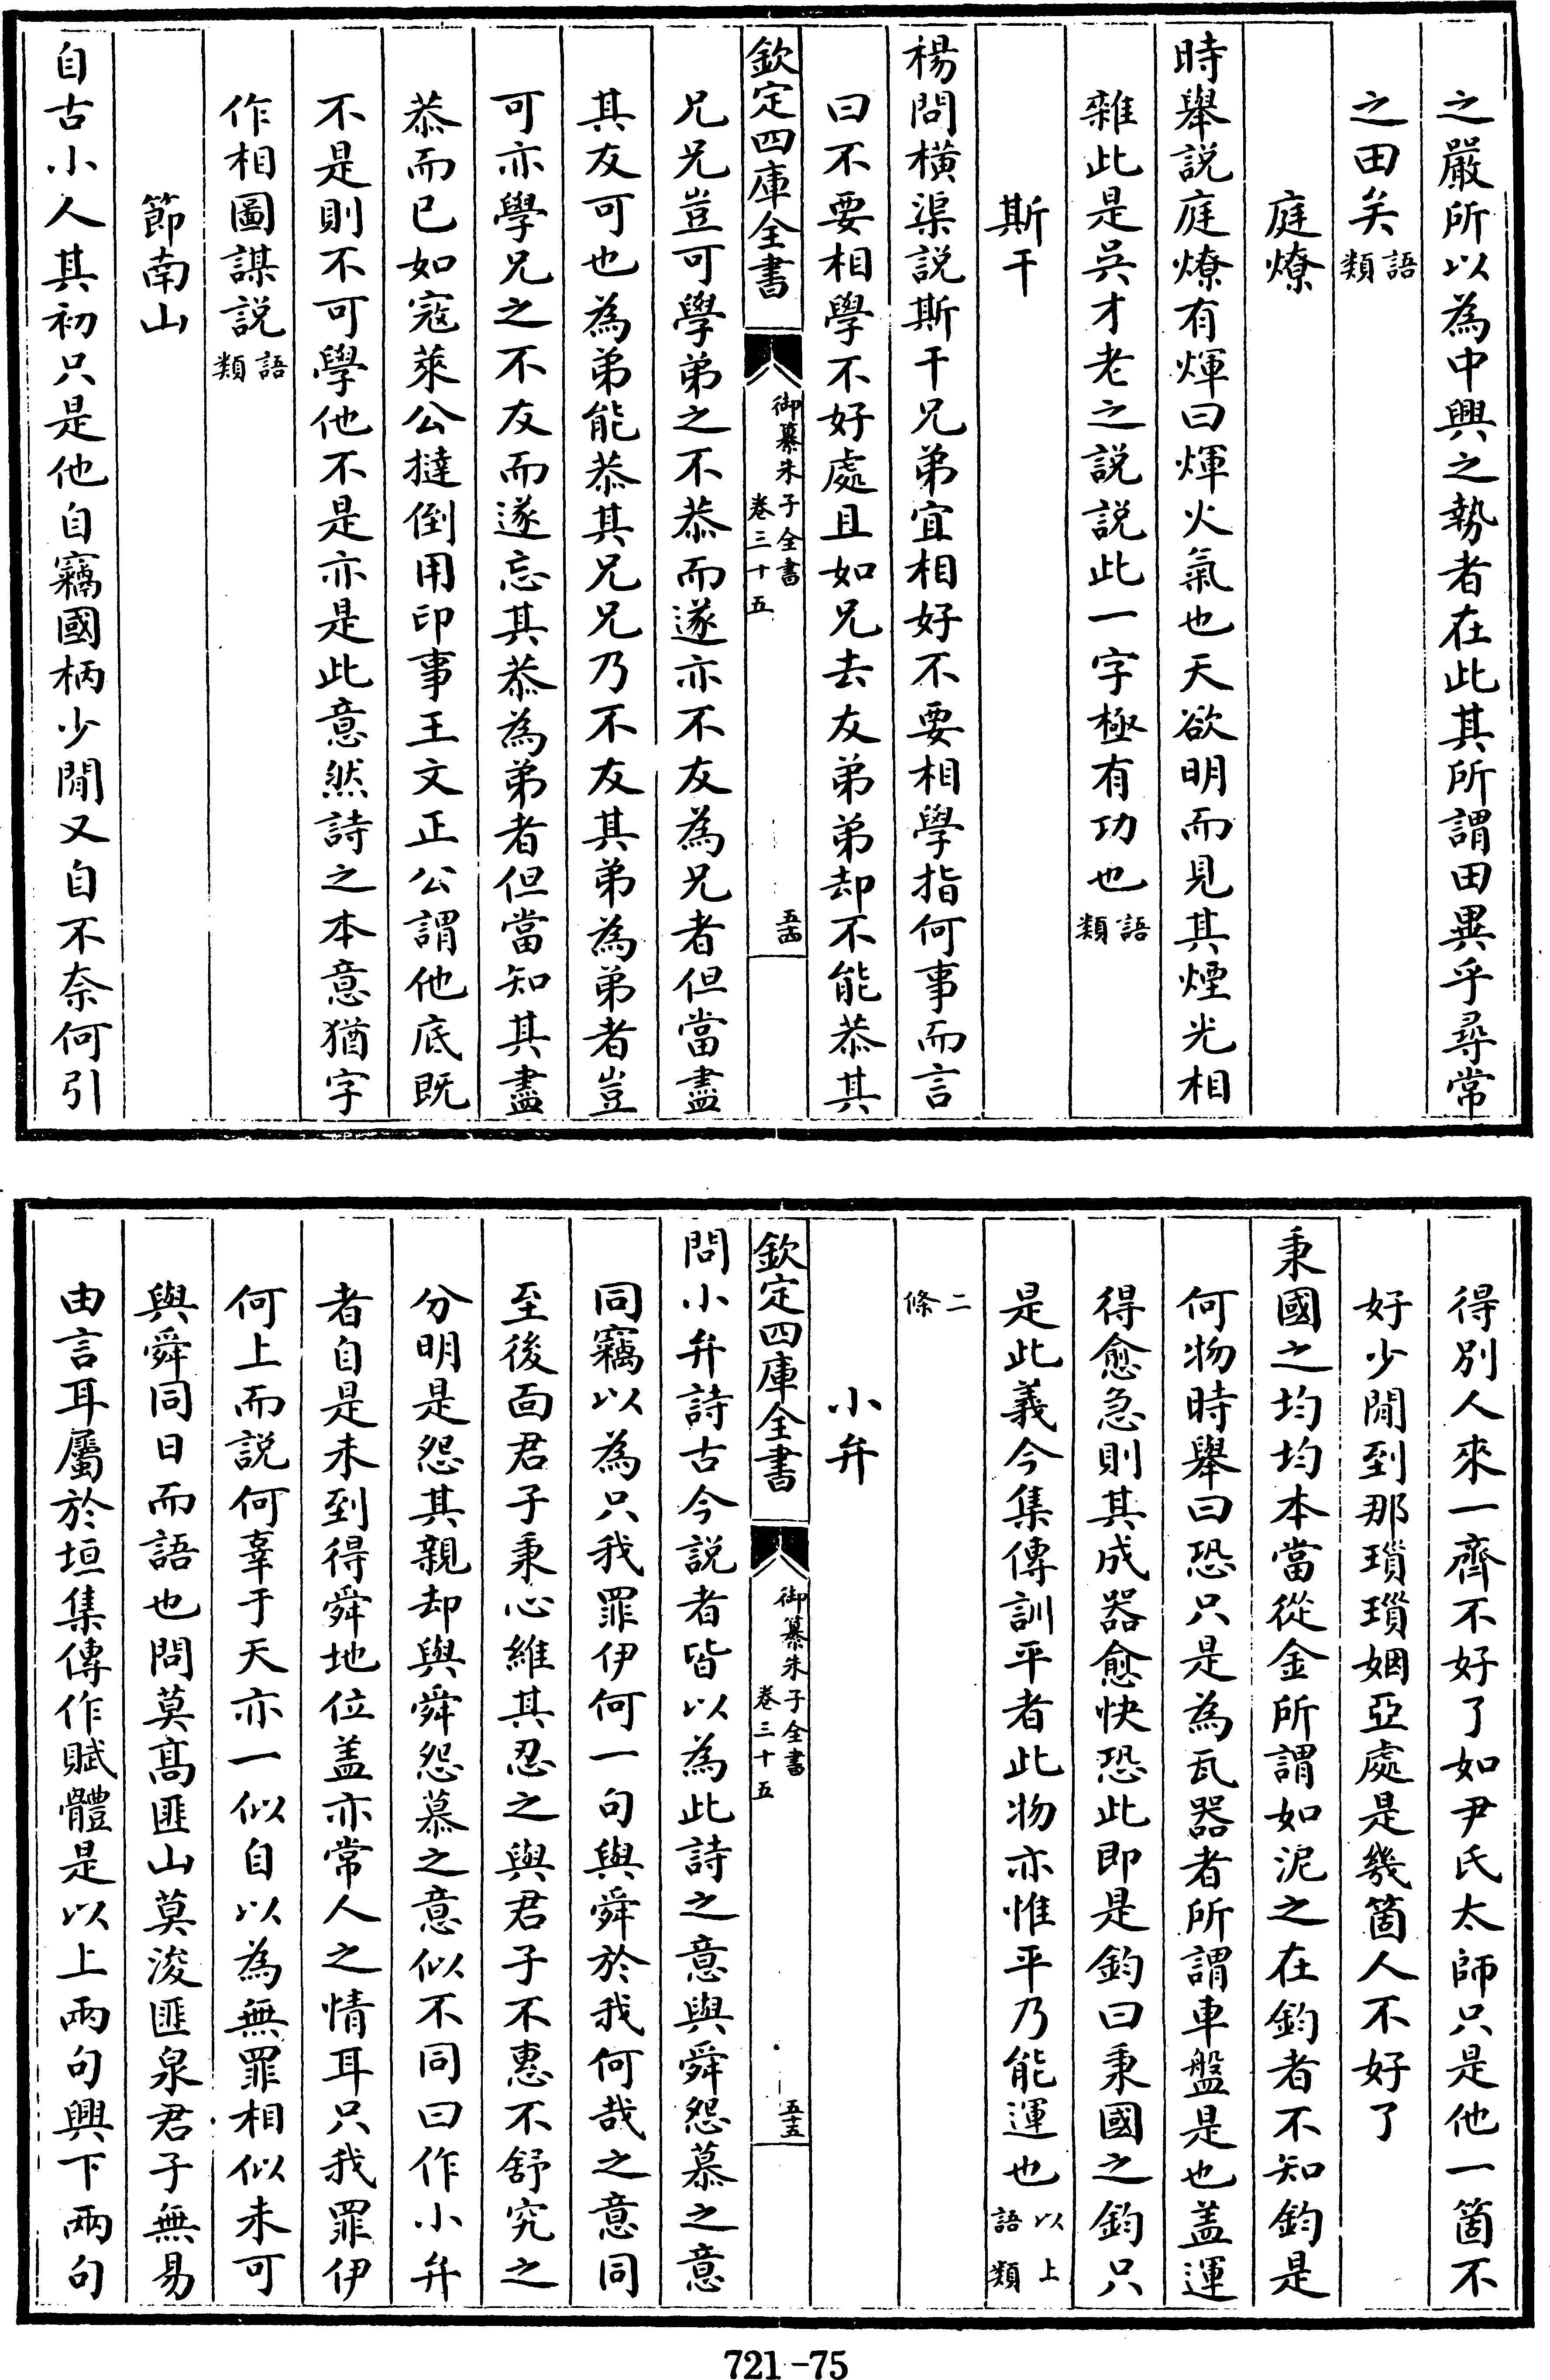 之嚴所以為中興之勢者在此其所謂田異乎尋常
之田矣語類
庭燎
時舉説庭燎有煇曰煇火氣也天欲明而見其煙光相
雜此是吳才老之説説此一字極有功也語類
斯干
楊問橫渠説斯干兄弟宜相好不要相學指何事而言
曰不要相學不好處且如兄去友弟弟却不能恭其
欽定四庫全書
御纂朱子全書
卷三十五
五四
兄兄豈可學弟之不恭而遂亦不友為兄者但當盡
其友可也為弟能恭其兄兄乃不友其弟為弟者豈
可亦學兄之不友而遂忘其恭為弟者但當知其盡
恭而已如寇萊公撻倒用印事王文正公謂他底既
不是則不可學他不是亦是此意然詩之本意猶字
作相圖謀説語類
節南山
自古小人其初只是他自竊國柄少閒又自不奈何引
得別人來一齊不好了如尹氏太師只是他一箇不
好少閒到那瑣瑣姻亞處是幾箇人不好了
秉國之均均本當從金所謂如泥之在鈞者不知鈞是
何物時舉曰恐只是為瓦器者所謂車盤是也盖運
得愈急則其成器愈快恐此即是鈞曰秉國之鈞只
是此義今集傳訓平者此物亦惟平乃能運也以上語類
二條
小弁
欽定四庫全書
御纂朱子全書
卷三十五
五五
問小弁詩古今説者皆以為此詩之意與舜怨慕之意
同竊以為只我罪伊何一句與舜於我何哉之意同
至後面君子秉心維其忍之與君子不惠不舒究之
分明是怨其親却與舜怨慕之意似不同曰作小弁
者自是未到得舜地位盖亦常人之情耳只我罪伊
何上而説何辜于天亦一似自以為無罪相似未可
與舜同日而語也問莫髙匪山莫浚匪泉君子無易
由言耳屬於垣集傳作賦體是以上兩句興下兩句
721-75